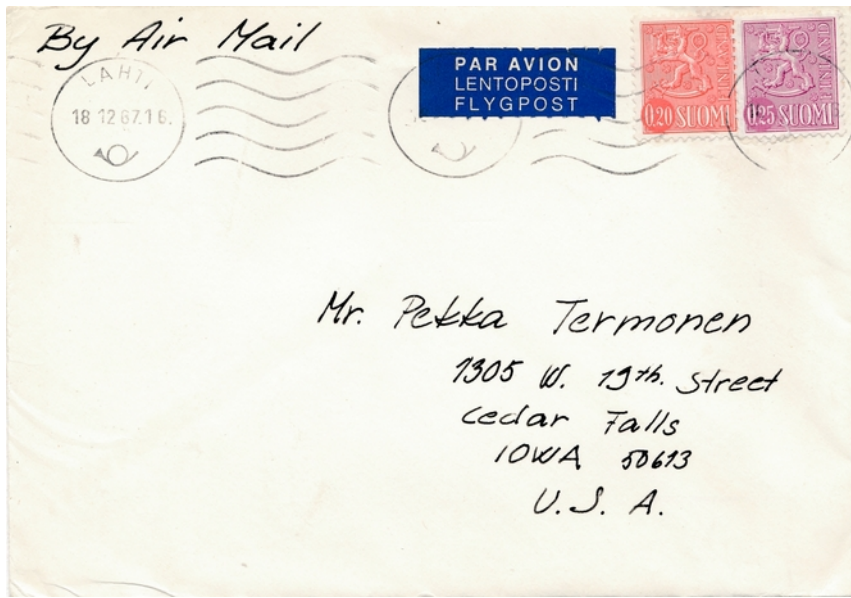 By Air Mail
LAHTI
18 12 67.16.
PAR AVION
LENTOPOSTI
FLYGPOST
FINLAND
0,20 SUOMI
FINLAND
0,25 SUOMI
Mr. Pekka Termonen
1305 W. 19th. Street
Cedar Falls
IOWA 50613
U.S.A.